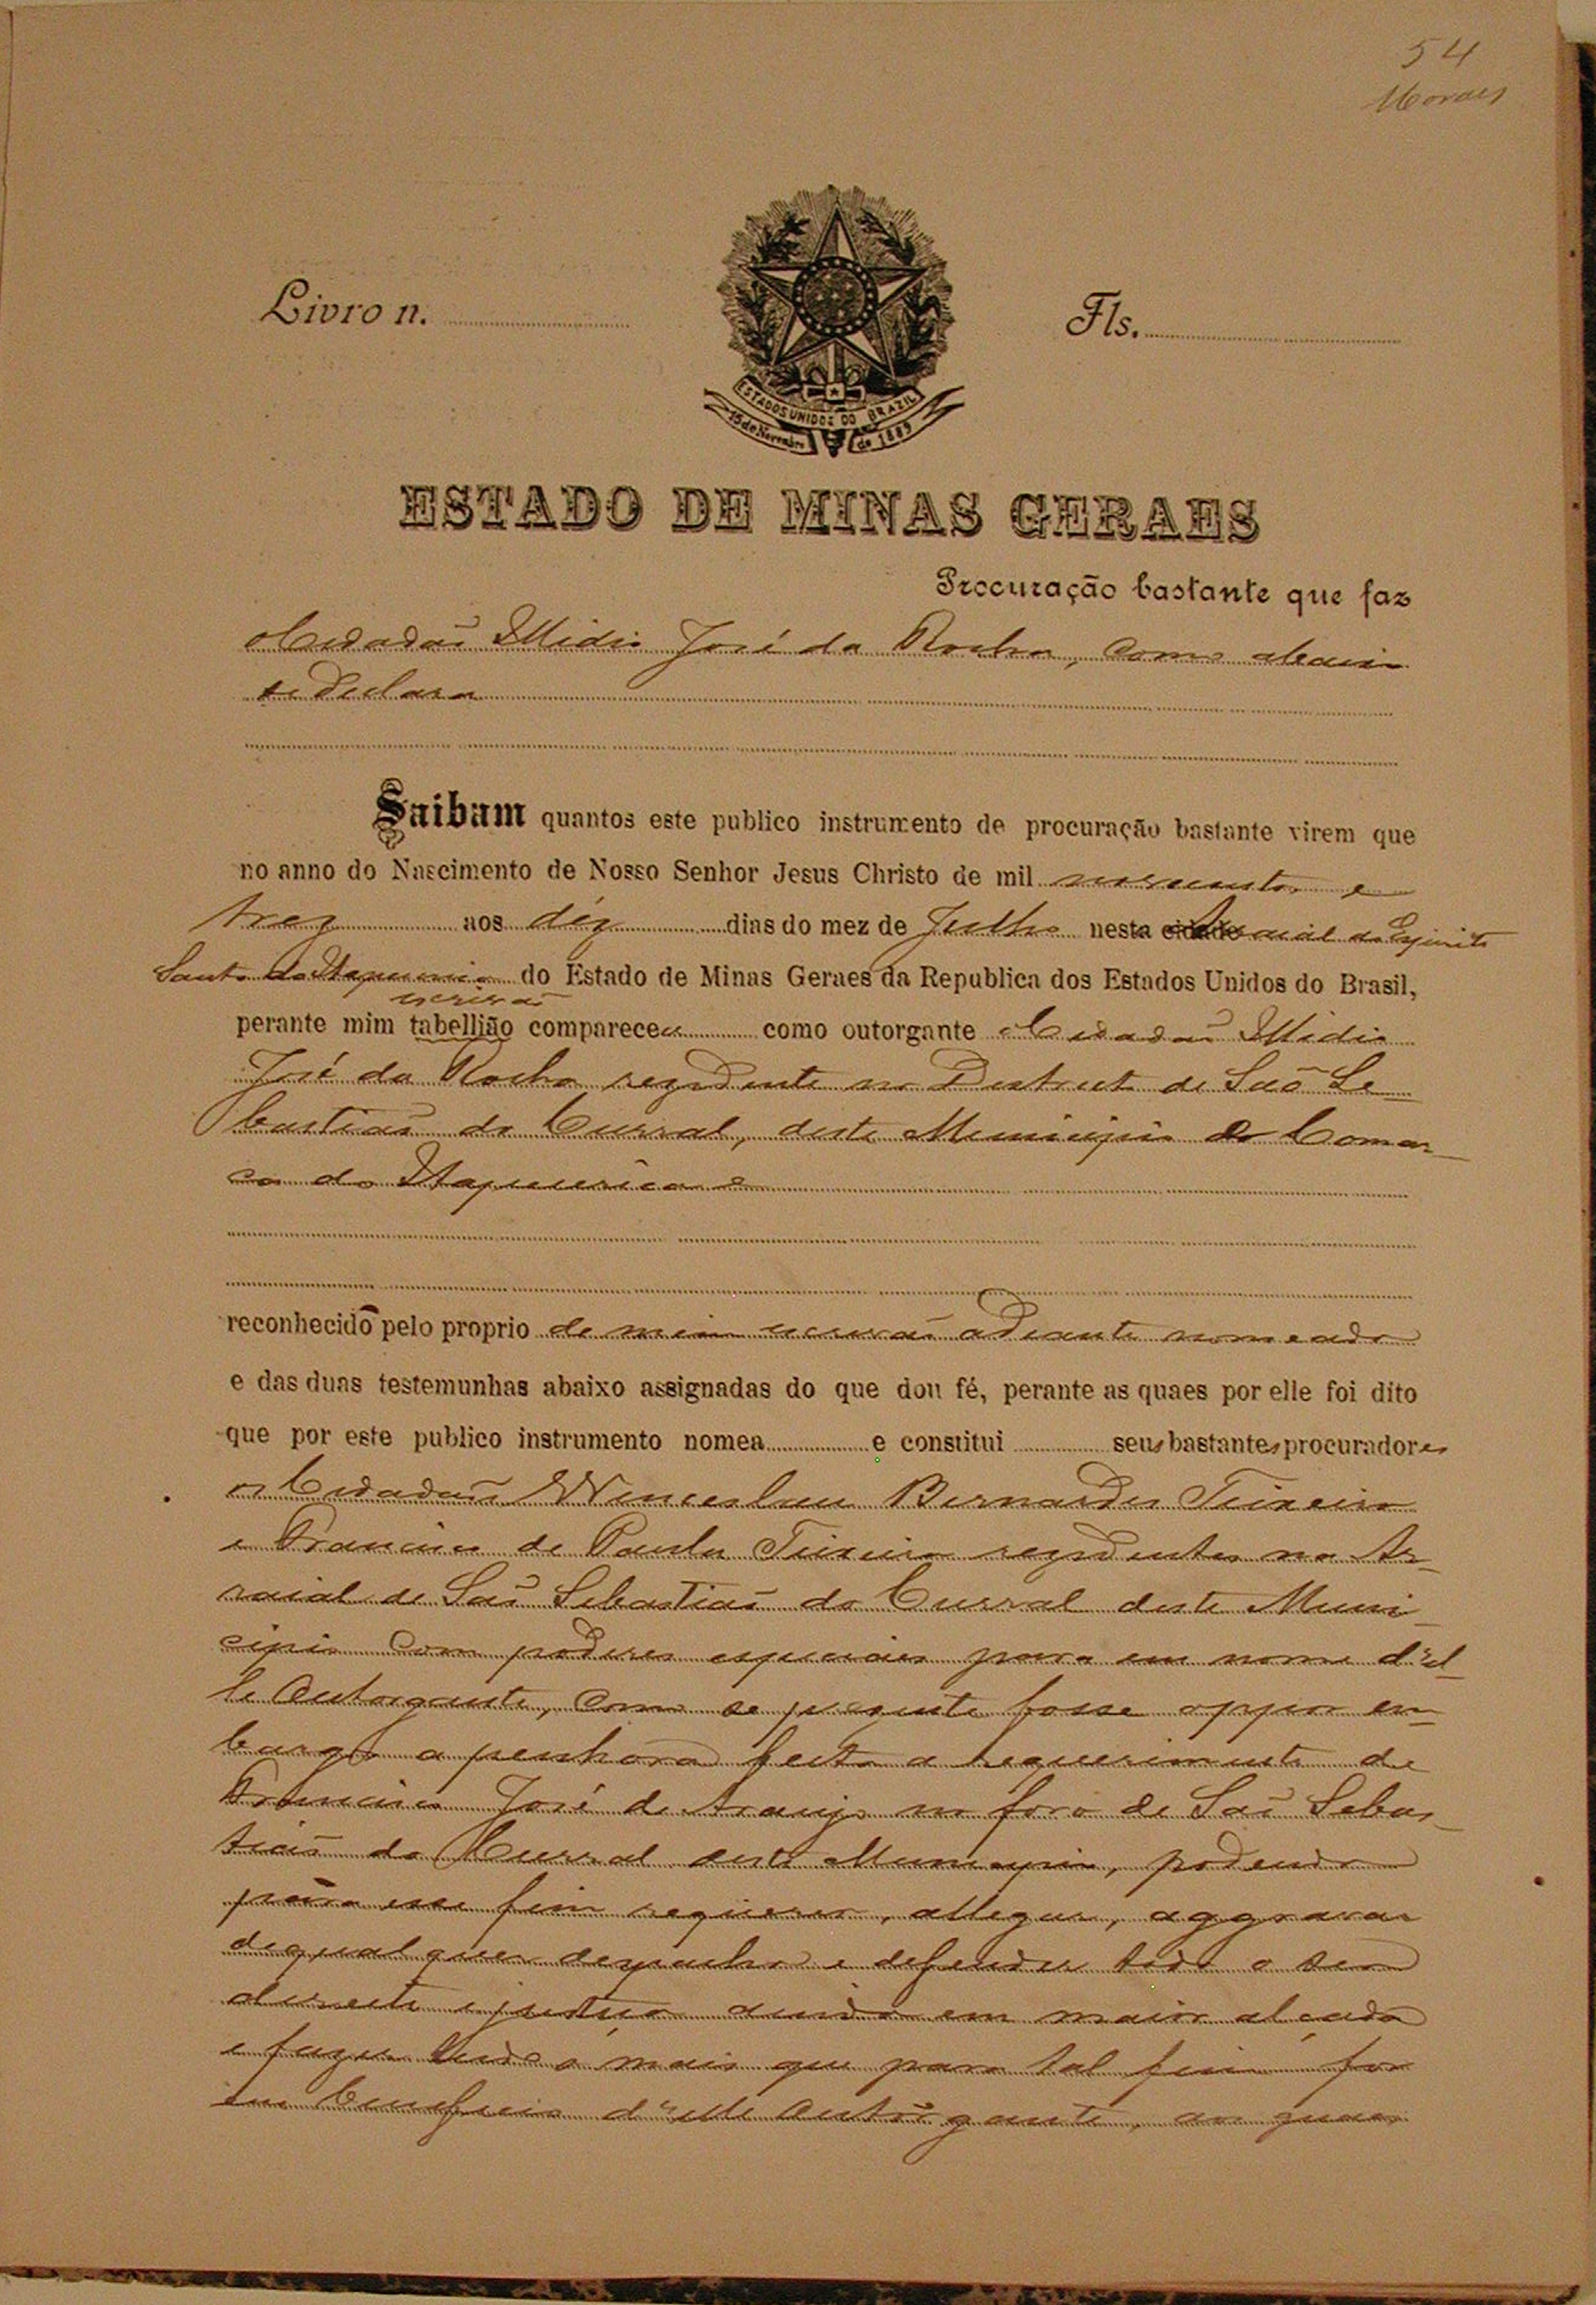 54
Moraes
Livro n. Fls.
ESTADOS UNIDOS DO BRAZIL
15 de Novembro de 1889
ESTADO DE MINAS GERAES
Procuração bastante que faz
o Cidadão Illidio José da Rocha, como abaixo
se declara
Saibam quantos este publico instrumento de procuração bastante virem que
no anno do Nascimento de Nosso Senhor Jesus Christo de mil novecentos e
trez aos déz dias do mez de Julho nesta cidade Arraial do Espirito
Santo do Itapecerica do Estado de Minas Geraes da Republica dos Estados Unidos do Brasil,
escrivão
perante mim tabellião compareceu como outorgante o Cidadão Illidio
José da Rocha rezidente no Districto de São Se
bastião do Curral, deste Municipio e Comar
ca do Itapecerica e
reconhecido pelo proprio de mim escrivão adiante nomeado
e das duas testemunhas abaixo assignadas do que dou fé, perante as quaes por elle foi dito
que por este publico instrumento nomea e constitui seus bastantes procuradores
os Cidadãos Wenceslau Bernardes Teixeira
e Francisco de Paula Teixeira rezidentes no Ar
raial de São Sebastião do Curral deste Muni
cipio com poderes especiaes para em nome d'el
le Outorgante, como se prezente fosse oppor em
bargos a penhora feita a requerimento de
Francisco José de Araujo no foro de São Sebas
tião do Curral deste Municipio, podendo
para esse fim requerer, allegar, aggravar
de qualquer despacho e defender todo o seu
direito e justiça ainda em maior alçada
e fazer tudo o mais que para tal fim for
em beneficio d'elle Outorgante, aos quaes